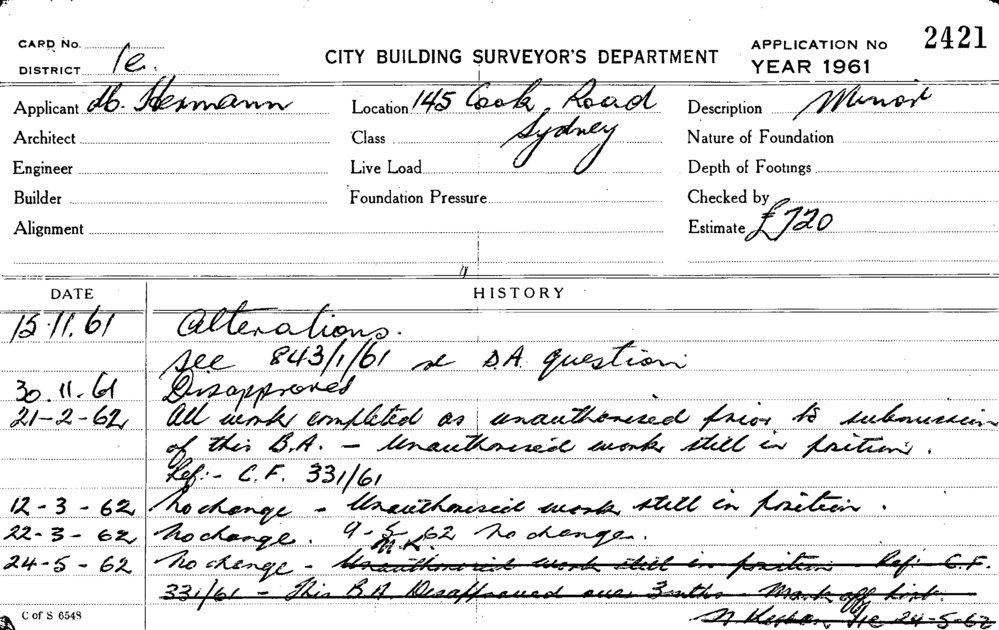 CARD No.
DISTRICT 1e.
CITY BUILDING SURVEYOR'S DEPARTMENT
APPLICATION No 2421
YEAR 1961
Applicant M. Hermann
Location 145 Cook Road
Sydney
Description Minor
Architect
Class
Nature of Foundation
Engineer
Live Load
Depth of Footings
Builder
Foundation Pressure
Checked by
Alignment
Estimate £720
DATE HISTORY
15.11.61 Alterations.
see 843/1/61 re D.A. question
30.11.61 Disapproved
21-2-62 All work completed as unauthorised prior to submission
of this B.A. - Unauthorised work still in position.
Ref:- C.F. 331/61
12-3-62 No change - Unauthorised work still in position.
22-3-62 No change. 9-5-62 No change.
24-5-62 No change - Unauthorised work still in position - Ref: C.F.
331/61 - This B.A. Disapproved over 3 mths - Mark off list.
24-5-62
C of S 6548